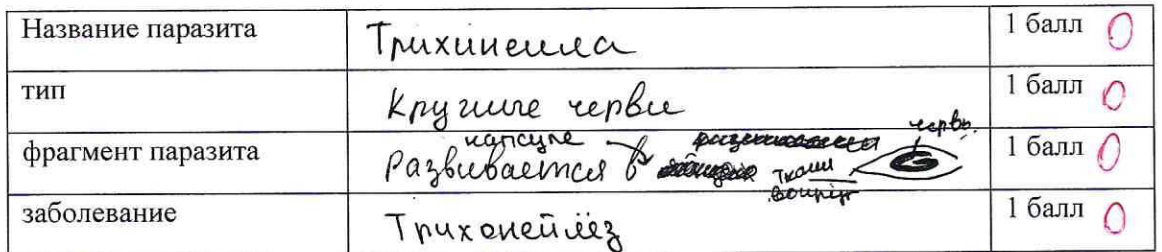 Название паразита Трихинелла 1 балл 0
тип Круглые черви 1 балл 0
фрагмент паразита Развивается в капсуле ткани вокруг червь 1 балл 0
заболевание Трихонеллёз 1 балл 0